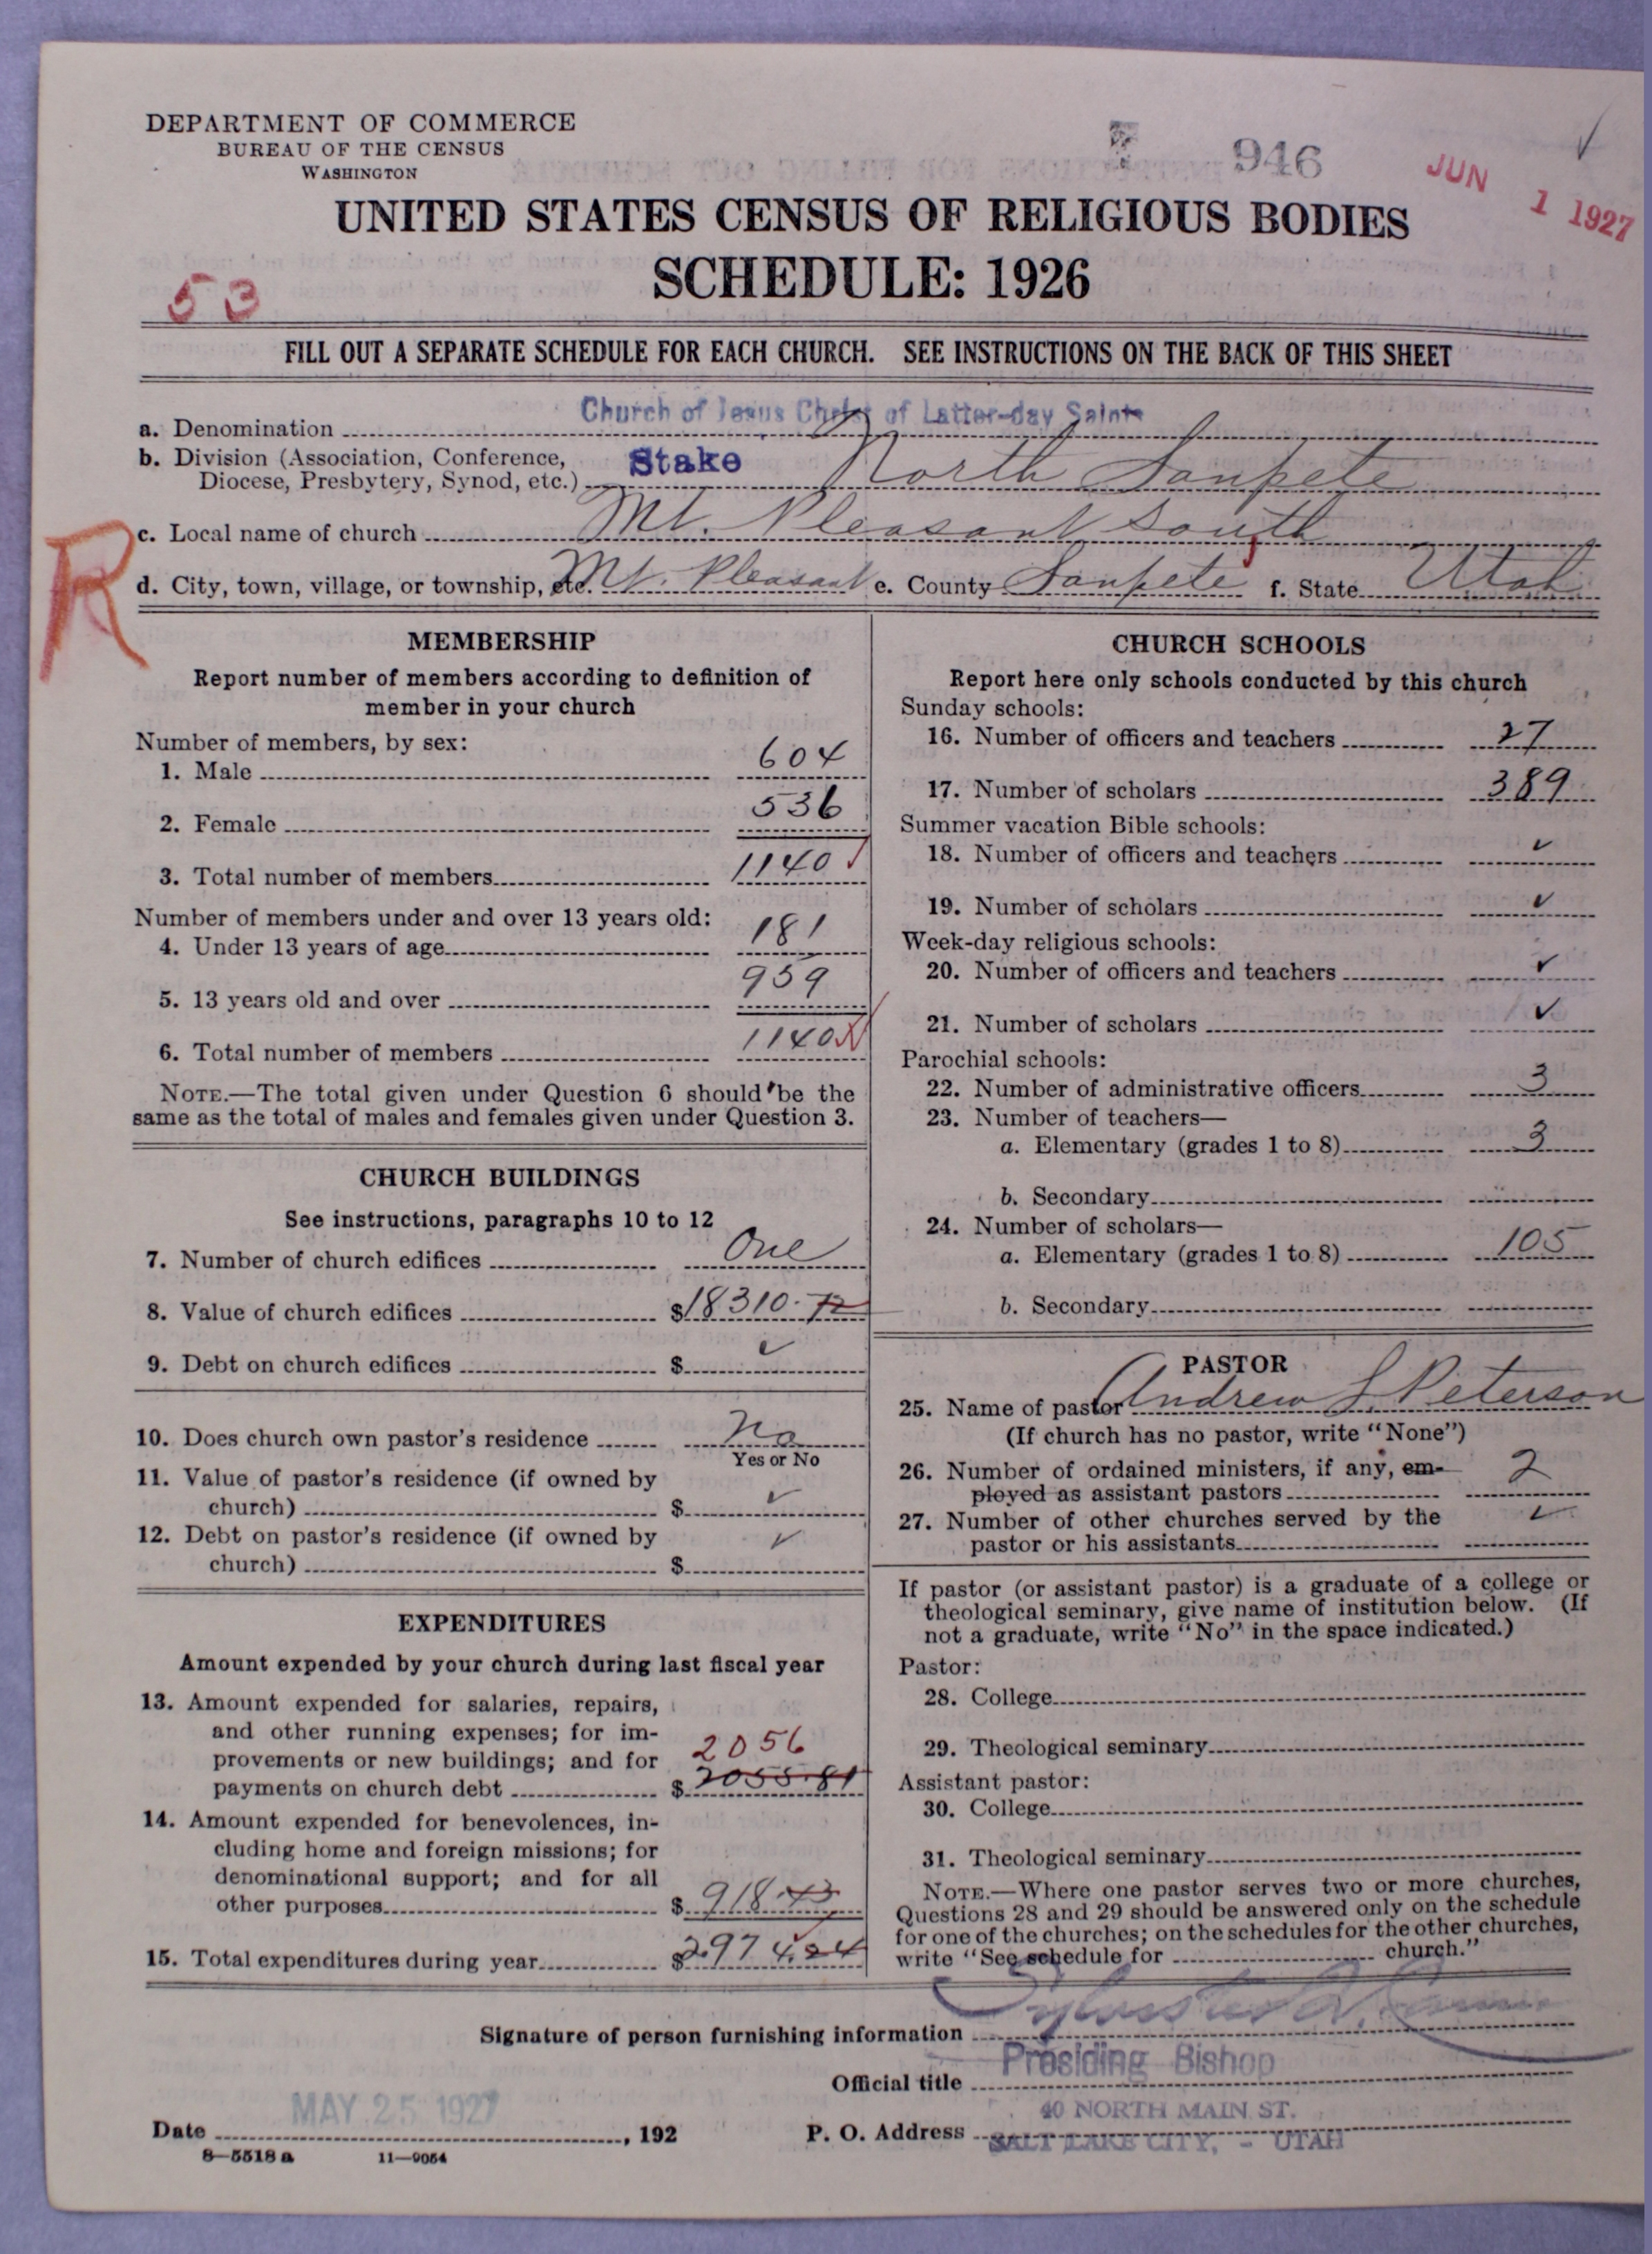 DEPARTMENT OF COMMERCE
BUREAU OF THE CENSUS
WASHINGTON
946
JUN 1 1927
UNITED STATES CENSUS OF RELIGIOUS BODIES
SCHEDULE: 1926
53
FILL OUT A SEPARATE SCHEDULE FOR EACH CHURCH. SEE INSTRUCTIONS ON THE BACK OF THIS SHEET
a. Denomination Church of Jesus Christ of Latter-day Saints
b. Division (Association, Conference,
Diocese, Presbytery, Synod, etc.) Stake North Sanpete
R
c. Local name of church Mt. Pleasant South
d. City, town, village, or township, etc. Mt. Pleasant e. County Sanpete f. State Utah
MEMBERSHIP
Report number of members according to definition of
member in your church
Number of members, by sex:
1. Male 604
2. Female 536
3. Total number of members 1140
Number of members under and over 13 years old:
4. Under 13 years of age 181
5. 13 years old and over 959
6. Total number of members 1140
NOTE.—The total given under Question 6 should be the
same as the total of males and females given under Question 3.
CHURCH BUILDINGS
See instructions, paragraphs 10 to 12
7. Number of church edifices One
8. Value of church edifices $18310.72
9. Debt on church edifices $ ✓
10. Does church own pastor's residence No
Yes or No
11. Value of pastor's residence (if owned by
church) $ ✓
12. Debt on pastor's residence (if owned by
church) $ ✓
EXPENDITURES
Amount expended by your church during last fiscal year
13. Amount expended for salaries, repairs,
and other running expenses; for im-
provements or new buildings; and for 2056
payments on church debt $ 2055.81
14. Amount expended for benevolences, in-
cluding home and foreign missions; for
denominational support; and for all
other purposes $ 918.43
15. Total expenditures during year $2974.24
CHURCH SCHOOLS
Report here only schools conducted by this church
Sunday schools:
16. Number of officers and teachers 27
17. Number of scholars 389
Summer vacation Bible schools:
18. Number of officers and teachers ✓
19. Number of scholars ✓
Week-day religious schools:
20. Number of officers and teachers ✓
21. Number of scholars ✓
Parochial schools:
22. Number of administrative officers 3
23. Number of teachers—
a. Elementary (grades 1 to 8) 3
b. Secondary
24. Number of scholars—
a. Elementary (grades 1 to 8) 105
b. Secondary
PASTOR
25. Name of pastor Andrew L. Peterson
(If church has no pastor, write "None")
26. Number of ordained ministers, if any, em-
ployed as assistant pastors 2
27. Number of other churches served by the
pastor or his assistants ✓
If pastor (or assistant pastor) is a graduate of a college or
theological seminary, give name of institution below. (If
not a graduate, write "No" in the space indicated.)
Pastor:
28. College
29. Theological seminary
Assistant pastor:
30. College
31. Theological seminary
NOTE.—Where one pastor serves two or more churches,
Questions 28 and 29 should be answered only on the schedule
for one of the churches; on the schedules for the other churches,
write "See schedule for church."
Signature of person furnishing information
Official title Presiding Bishop
Date MAY 25 1927, 192
P. O. Address 40 NORTH MAIN ST.
SALT LAKE CITY, - UTAH
8—5518 a 11—9054